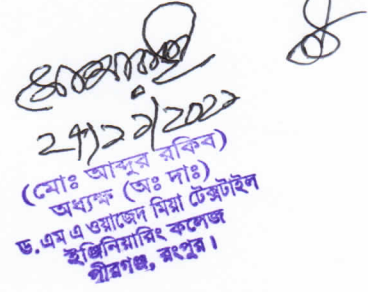 (মোঃ আব্দুর রকিব)
অধ্যক্ষ (অঃ দাঃ)
ড. এম এ ওয়াজেদ মিয়া টেক্সটাইল
ইঞ্জিনিয়ারিং কলেজ
পীরগঞ্জ, রংপুর।